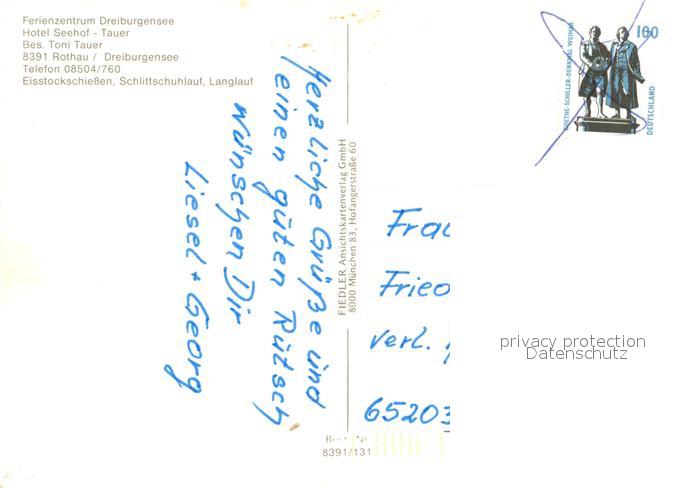 Ferienzentrum Dreiburgensee
Hotel Seehof - Tauer
Bes. Toni Tauer
8391 Rothau / Dreiburgensee
Telefon 08504/760
Eisstockschießen, Schlittschuhlauf, Langlauf
Herzliche Grüße und
einen guten Rutsch
wünschen Dir
Liesel + Georg
FIEDLER Ansichtskartenverlag GmbH
8000 München 83, Hofangerstraße 60
Best. Nr.
8391/131
GOETHE-SCHILLER-DENKMAL WEIMAR
100
DEUTSCHLAND
Frau
Fried
verl.
65203
privacy protection
Datenschutz